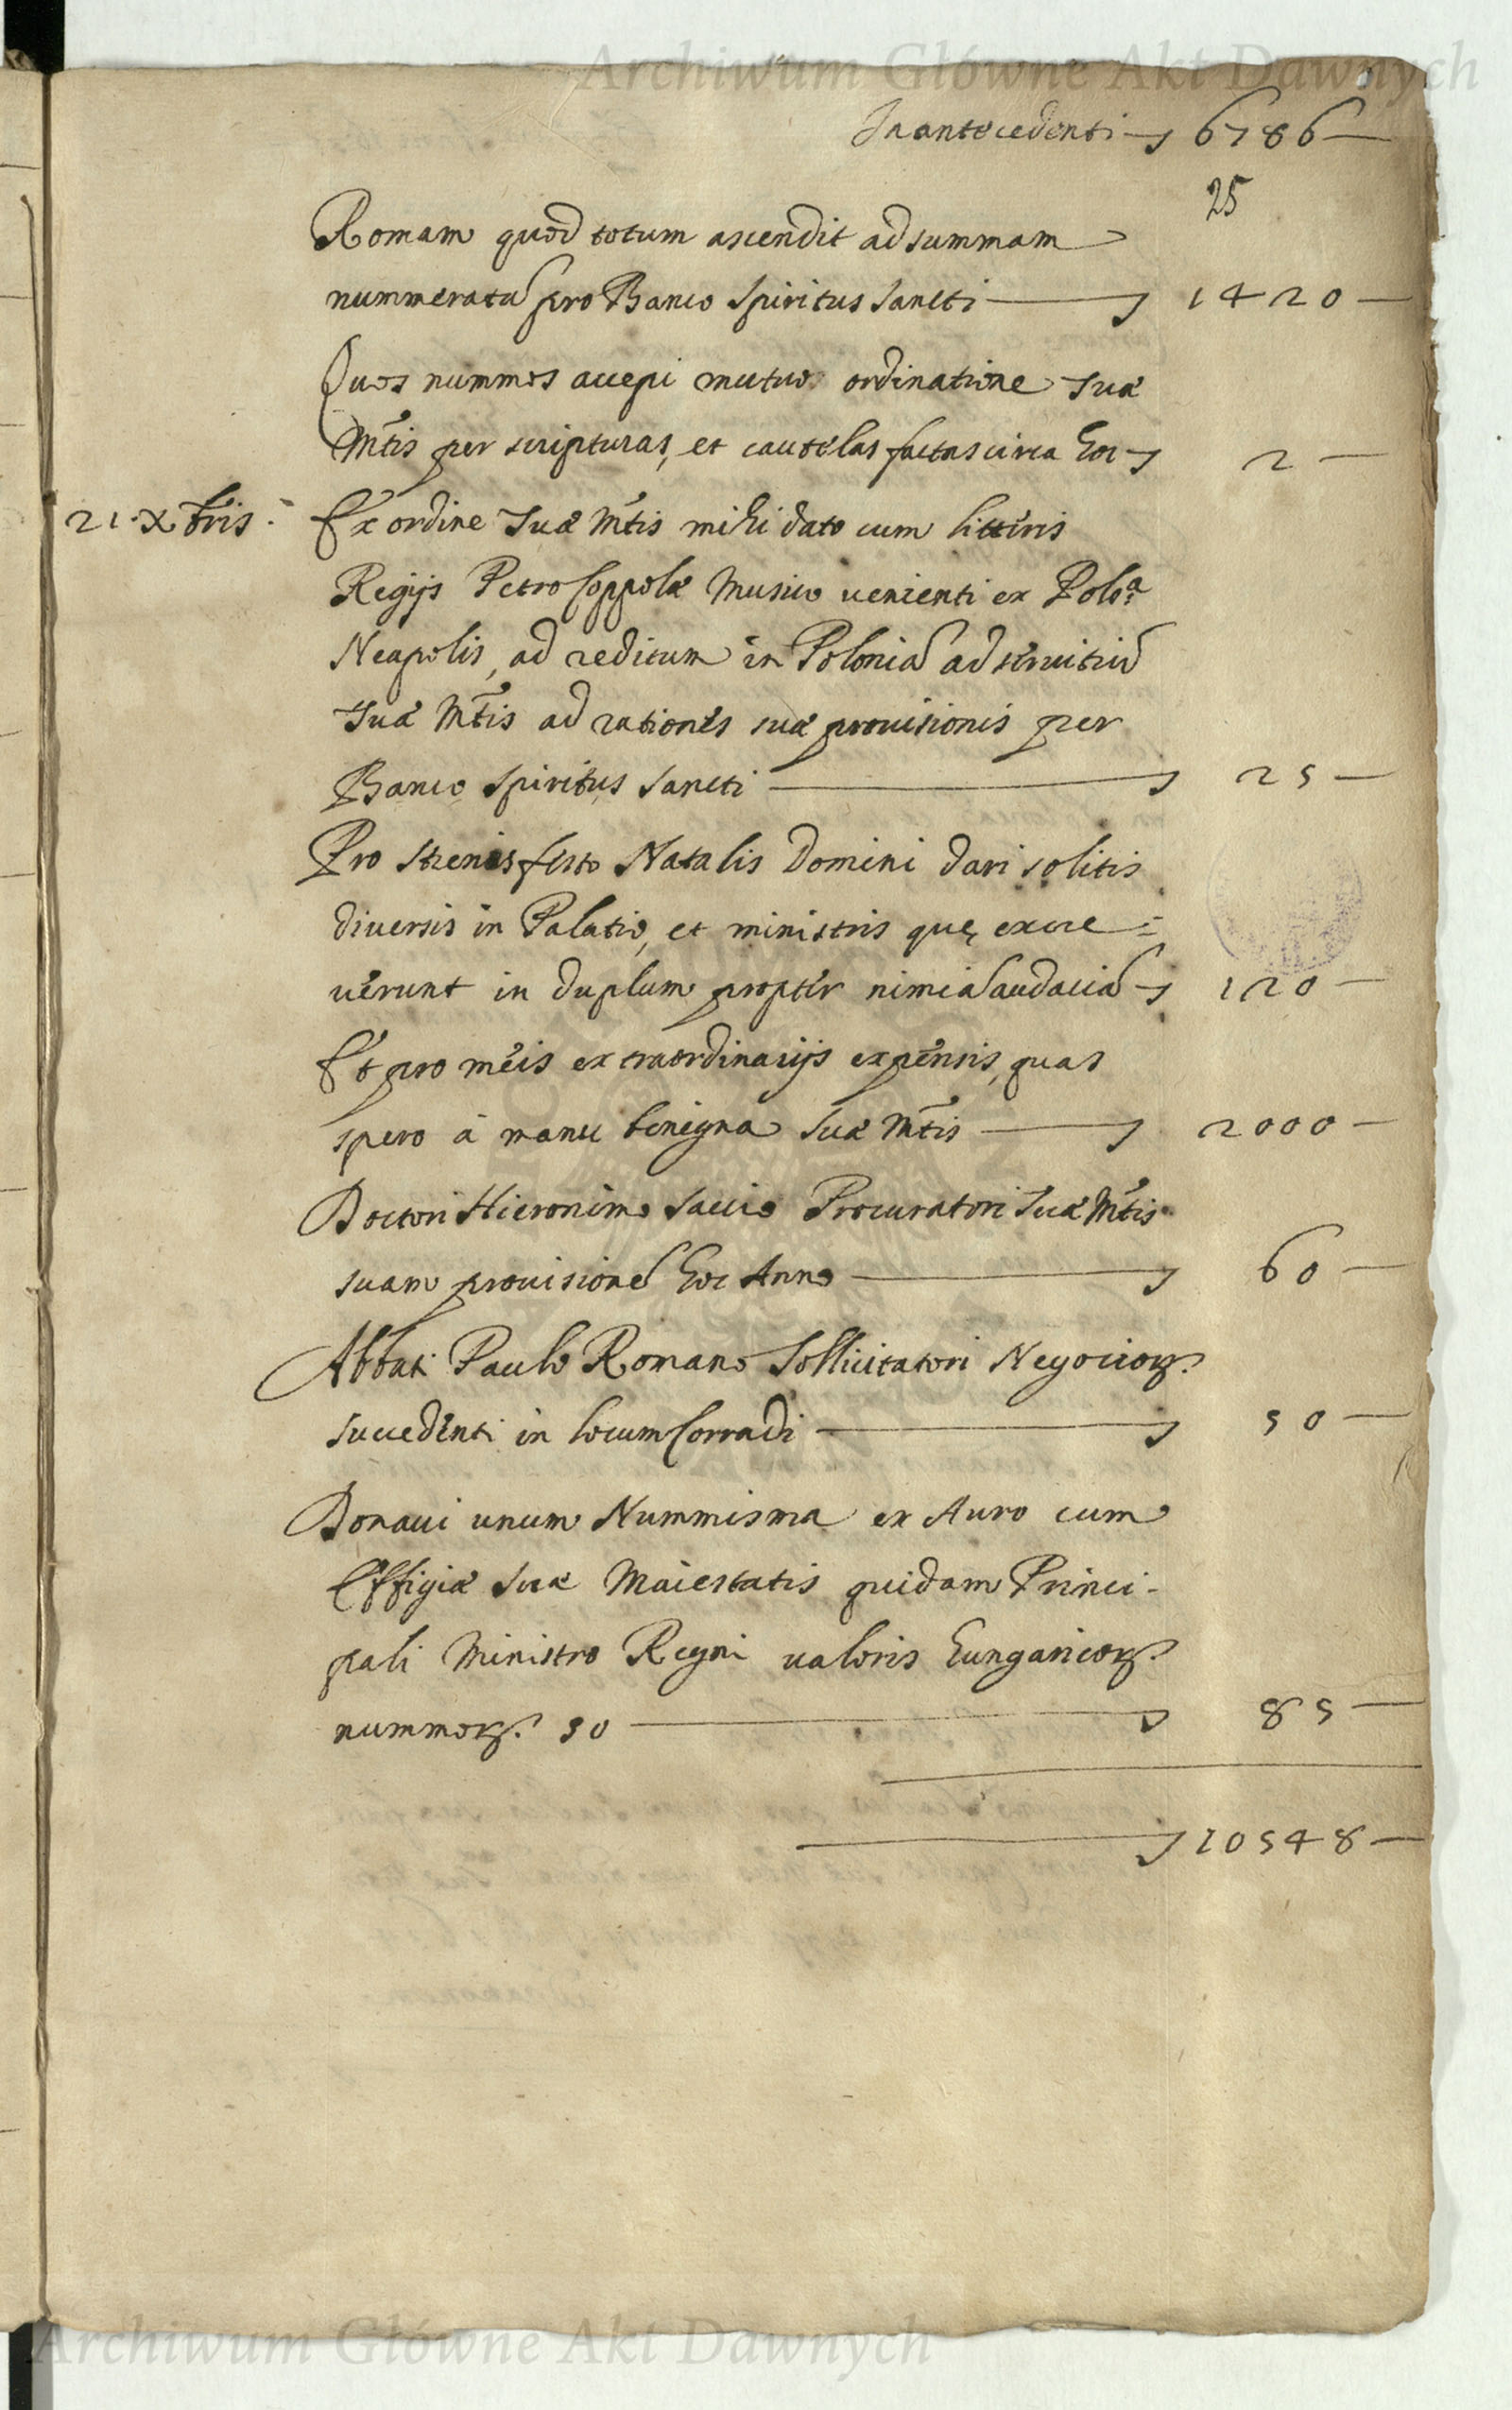 Archiwum Główne Akt Dawnych
In antecedenti 6786
25
Romam quod totum ascendit ad summam
nummeratũ pro Banco Spiritus Sancti 1420
Quos nummos accepi mutuo ordinatione Suæ
Mtis per scripturas, et cautelas factas circa hoc 2
21 Xbris. Ex ordine Suæ Mtis mihi dato cum litteris
Regijs Petro Coppolæ Musico venienti ex Polo.a
Neapolis, ad reditum in Poloniã ad servitiũ
Suæ Mtis ad rationes suæ provisionis per
Banco Spiritus Sancti 25
Pro strenis festo Natalis Domini dari solitis
diversis in Palatio, et ministris quę excre=
verunt in duplum propter nimiã audaciã 120
Et pro meis extraordinarijs expensis, quas
spero à manu benigna Suæ Mtis 2000
Doctori Hieronimo Saccio Procuratori Suæ Mtis
suam provisionẽ hoc Anno 60
Abbati Paulo Romano Sollicitatori Negocioꝝ
succedenti in locum Corradi 50
Donavi unum Nummisma ex Auro cum
Effigiæ Suæ Maiestatis quidam Princi-
pali Ministro Regni valoris hungaricoꝝ
nummoꝝ 50 85
10548
Archiwum Główne Akt Dawnych